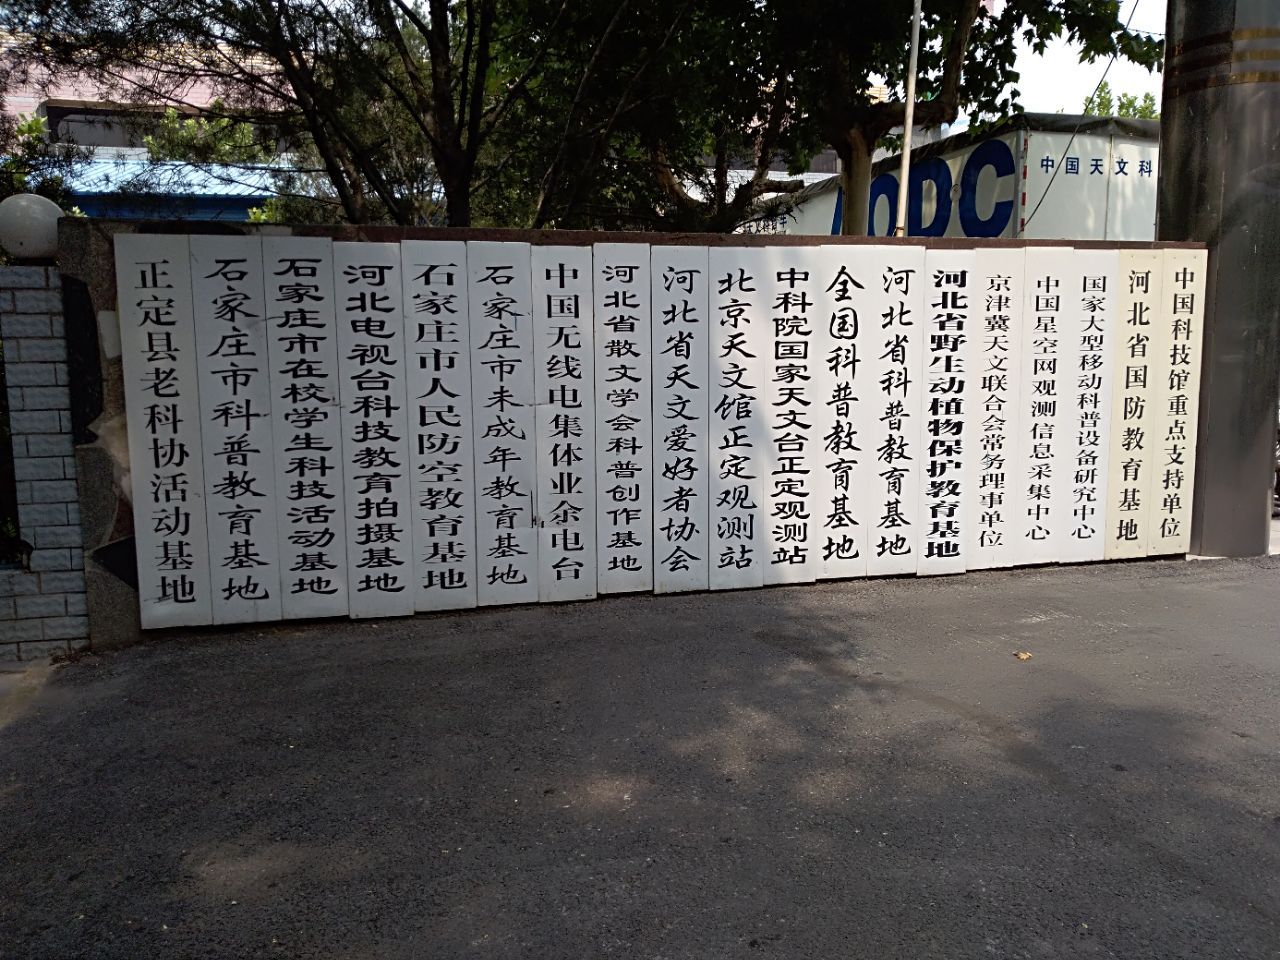 中国天文科
AODC
正定县老科协活动基地
石家庄市科普教育基地
石家庄市在校学生科技活动基地
河北电视台科技教育拍摄基地
石家庄市人民防空教育基地
石家庄市未成年教育基地
中国无线电集体业余电台
河北省散文学会科普创作基地
河北省天文爱好者协会
北京天文馆正定观测站
中科院国家天文台正定观测站
全国科普教育基地
河北省科普教育基地
河北省野生动植物保护教育基地
京津冀天文联合会常务理事单位
中国星空网观测信息采集中心
国家大型移动科普设备研究中心
河北省国防教育基地
中国科技馆重点支持单位